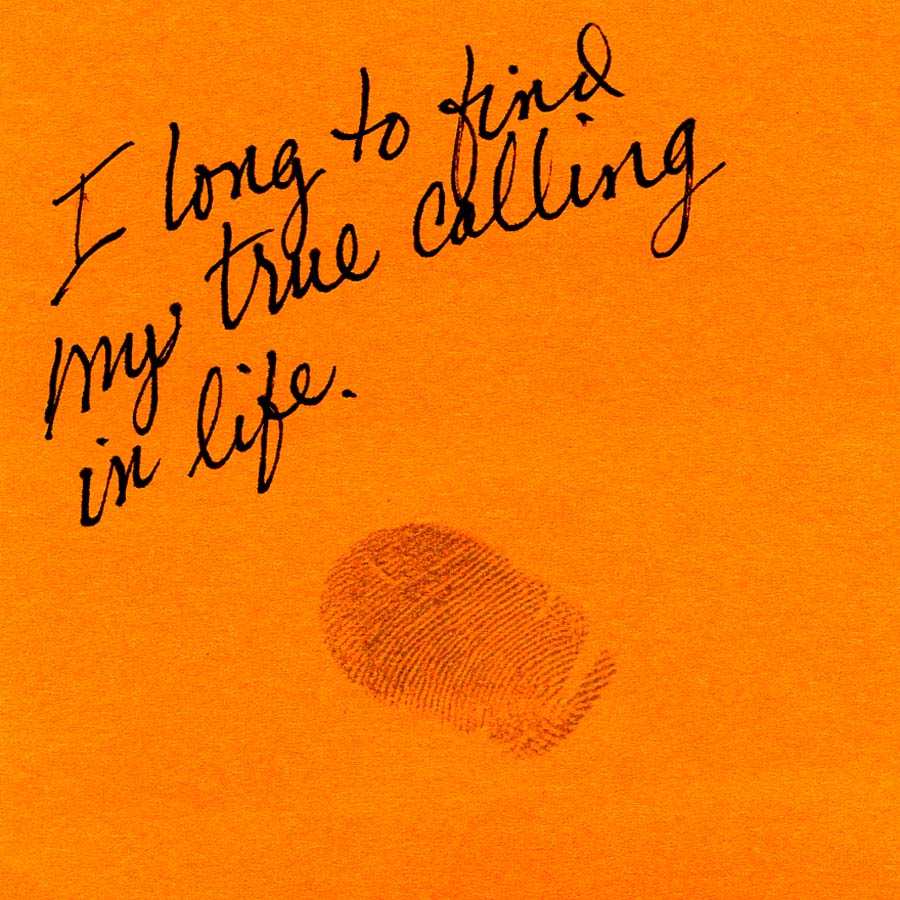 I long to find
my true calling
in life.